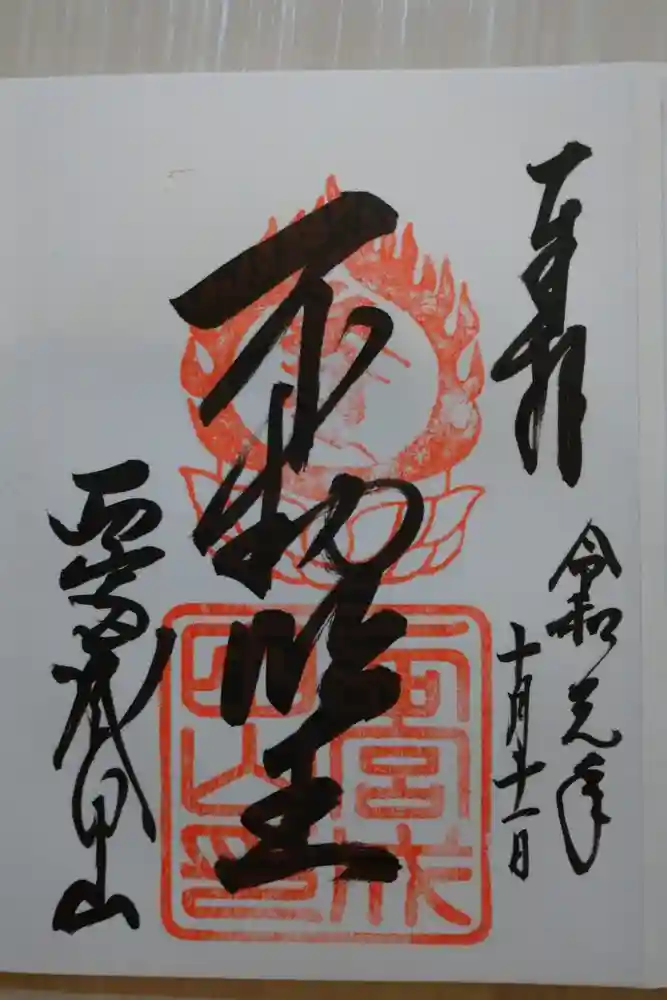 奉拝
令和元年
十月十一日
不動明王
西宮成田山
西宮成
田山印